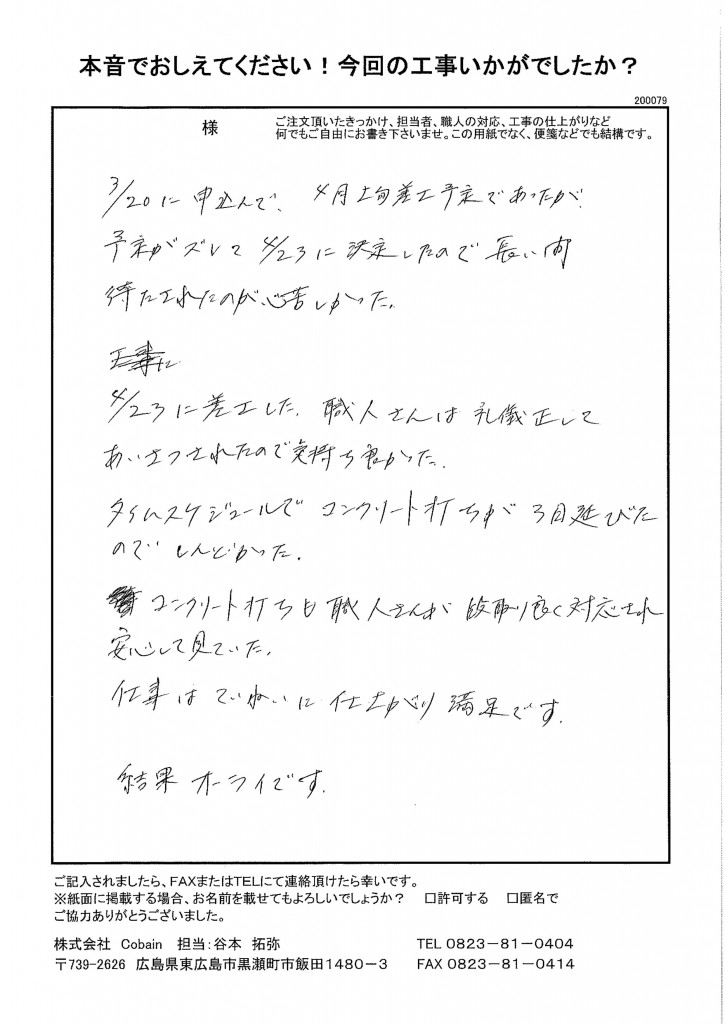 本音でおしえてください！今回の工事いかがでしたか？
200079
様
ご注文頂いたきっかけ、担当者、職人の対応、工事の仕上がりなど
何でもご自由にお書き下さいませ。この用紙でなく、便箋などでも結構です。
3/20に申込んで、4月上旬差工予定であったが
予定がズレて4/23に決定したので長い間
待たされたのが心苦しかった。
工事に
4/23に差工した。職人さんは礼儀正して
あいさつされたので気持ち良かった。
タイムスケジュールでコンクリート打ちが3日延びた
のでしんどかった。
コンクリート打ちも職人さんが段取り良く対応され
安心して見ていた。
仕事はていねいに仕上がり満足です。
結果オーライです。
ご記入されましたら、FAXまたはTELにて連絡頂けたら幸いです。
※紙面に掲載する場合、お名前を載せてもよろしいでしょうか？　□許可する　□匿名で
ご協力ありがとうございました。
株式会社　Cobain　担当：谷本　拓弥　TEL 0823－81－0404
〒739-2626　広島県東広島市黒瀬町市飯田1480－3　FAX 0823－81－0414